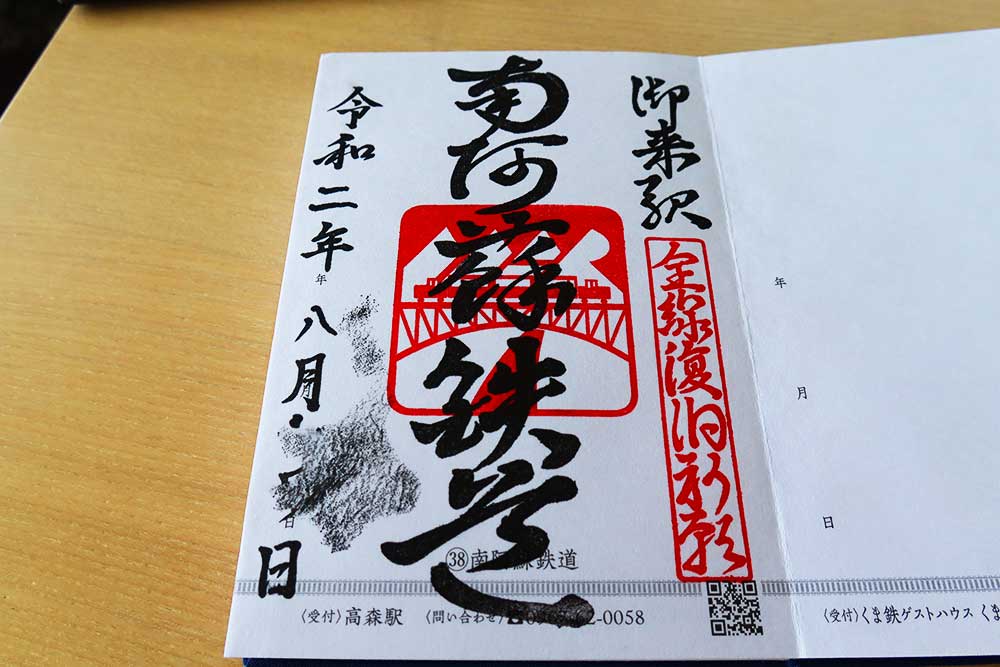 御来駅
全線復旧祈願
南阿蘇鉄道
令和二年
年
八月
日
日
㊳南阿蘇鉄道
〈受付〉高森駅 〈問い合わせ〉☎
2-0058
年
月
日
〈受付〉くま鉄ゲストハウス くま